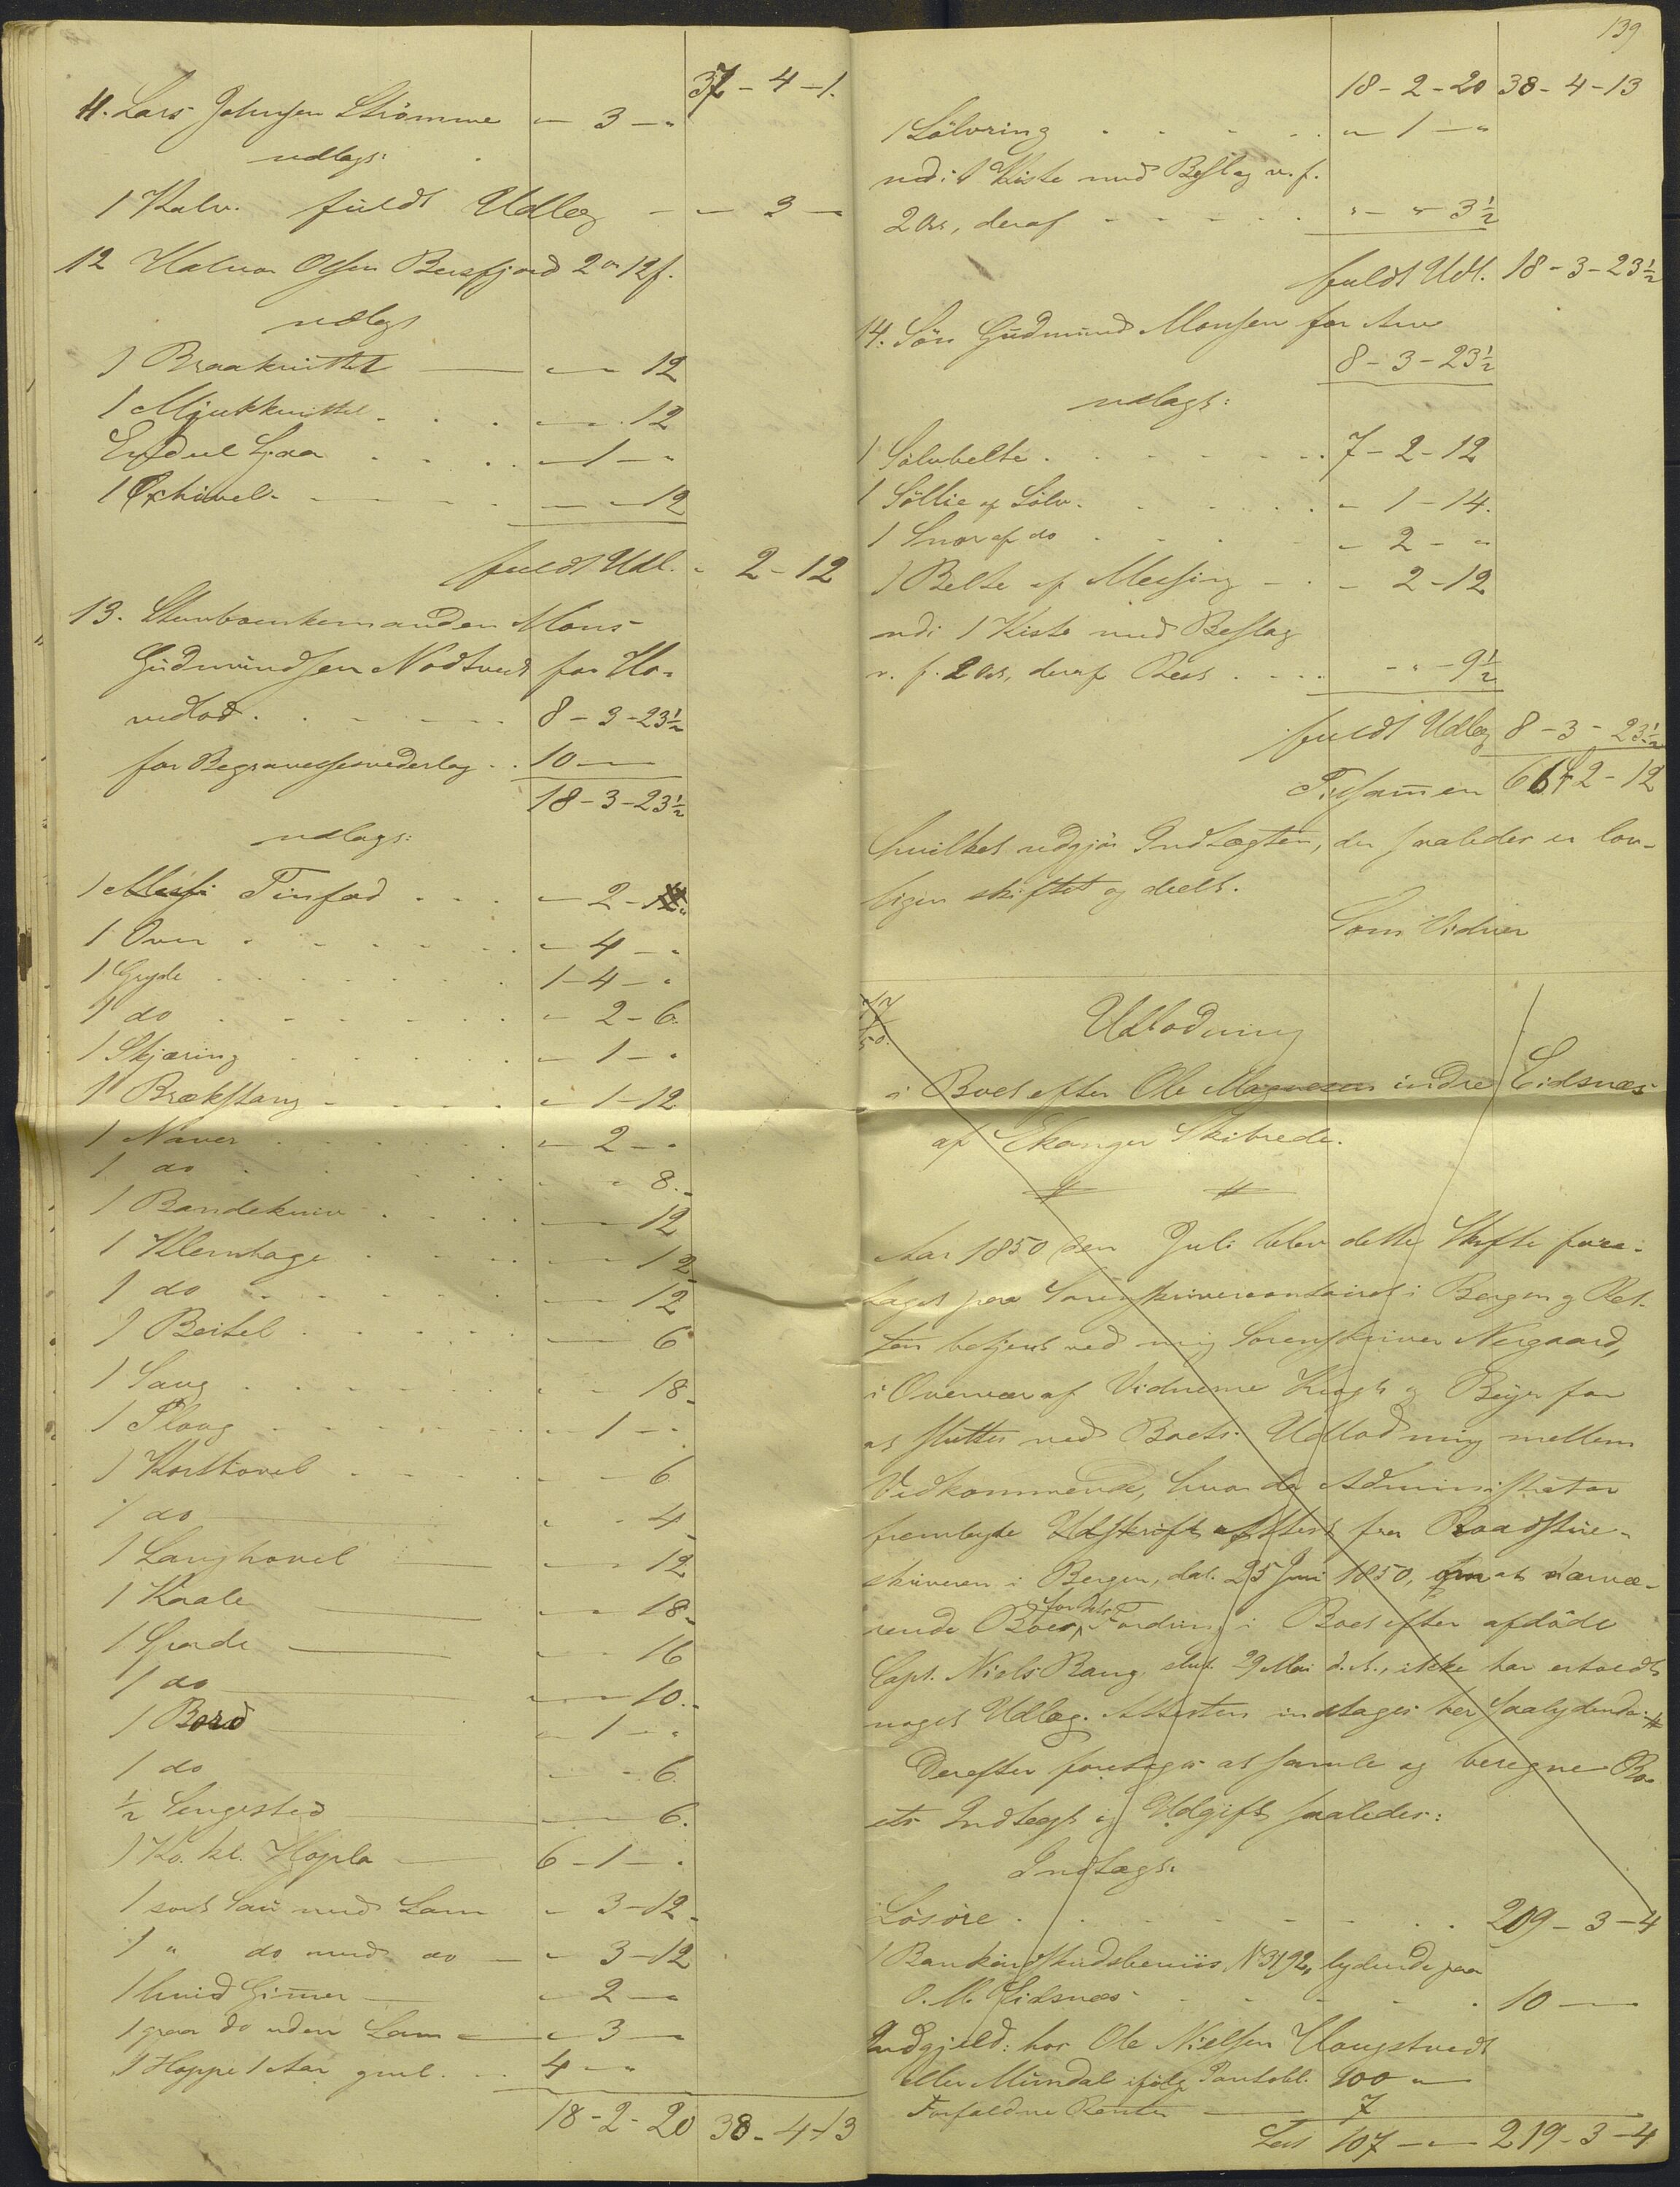 37 - 4 - 1.
11. Lars Johnsen Strømme " - 3 - "
udlagt:
1 Kalv. fuldt Udlæg - " - 3 - "
12 Halvor Olsen Bersfjord 2 " 12 f.
udlagt
1 Braaknittet " - " 12
1 Mjukknittel . . " - " 12
En deel Ljaa . . . " - 1 - "
1 Øxhivel " - " 12
fuldt Udl. " 2 - 12
13. Sturboenkemanden Mons
Gudmundsen Nodtvedt for Ho-
vedlod . . . 8 - 3 - 23½
for Begravelsesvederlag . . 10 - "
18 - 3 - 23½
udlagt:
1 Tinfad . . . " - 2 - "
1 Ovn . . . " - 4 - "
1 Gryde . . . 1 - 4 - "
1 do . . . " - 2 - 6.
1 Skjæring . . . " - 1 - "
1 Brækstang . . . " - 1 - 12
1 Naver . . . " - 2 - "
1 do . . . " - " 8.
1 Bandekniv . . . " - " 12
1 Klemhage . . . " - " 12
1 do . . . " - " 12
1 Beitel . . . " - " 6
1 Saug . . . " - " 18
1 Ploug . . . " - 1 - "
1 Korthøvel . . . " - " 6
1 do " - " 4
1 Langhøvel " - " 12
1 Kaale " - " 18
1 Spade " - " 16
1 do " - " 10
1 Bord " - 1 - "
1 do " - " 6.
½ Sengested " - " 6.
1 Ko. kl. Hopla 6 - 1 - "
1 sort Sau med Lam " - 3 - 12
1 " do med do " - 3 - 12
1 hvid Gimmer " - 2 - "
1 graa do uden Lam " - 3 - "
1 Hoppe 1 Aar gml. 4 - "
18 - 2 - 20 38 - 4 - 13
139
18 - 2 - 20 38 - 4 - 13
1 Sølvring . . . " - 1 - "
udi 1 Kiste med Beslag v. f.
2 Ort, deraf . . . " - " 3½
fuldt Udl. 18 - 3 - 23½
14. Søn Gudmund Monsen for Arv
8 - 3 - 23½
udlagt:
1 Sølvbelte . . . 7 - 2 - 12
1 Søllie af Sølv . . . " 1 - 14.
1 Snor af do . . . " 2 - "
1 Belte af Messing . . . " 2 - 12
udi 1 Kiste med Beslag
v. f. 2 Ort, deraf Rest . . . " - " 9½
fuldt Udlæg 8 - 3 - 23½
Tilsammen 66 - 2 - 12
hvilket udgjør Indtægten, der saaledes er lov-
ligen skiftet og deelt.
Som Vidner
Udlodning
i Boet efter Ole Magnesen indre Eidsnæs
af Ekanger Skibrede.
Aar 1850 den Juli blev dette Skifte fore-
taget paa Sorenskrivercontoiret i Bergen og Ret-
ten betjent ved mig Sorenskriver Nergaard,
i Overvær af Vidnerne Krogh og Beyer for
at slutte ved Boets Udlodning mellem
Vedkommende, hvor da Administrator
fremlagde Udskrift Attest fra Raadstue-
skriveren i Bergen, dat. 25 Juni 1850, om at nærvæ-
rende Boes Fordring i Boet efter afdøde
Capt. Niels Bang, slut. 29 Mai d. A., ikke har erholdt
noget Udlæg. Attesten indtages her saalydende:
Derefter foretages at samle og beregne Bo-
ets Indtægt og Udgift saaledes:
Indtægt.
Løsøre . . . 209 - 3 - 4
1 Bankindskudsbeviis No 3192, lydende paa
O. M. Eidsnæs . . . 10 - "
Indgjeld: hos Ole Nielsen Haugstvedt
eller Mundal ifølge Pantobl. 100 "
Forfaldne Renter 7
Lat 107 - " - 219 - 3 - 4